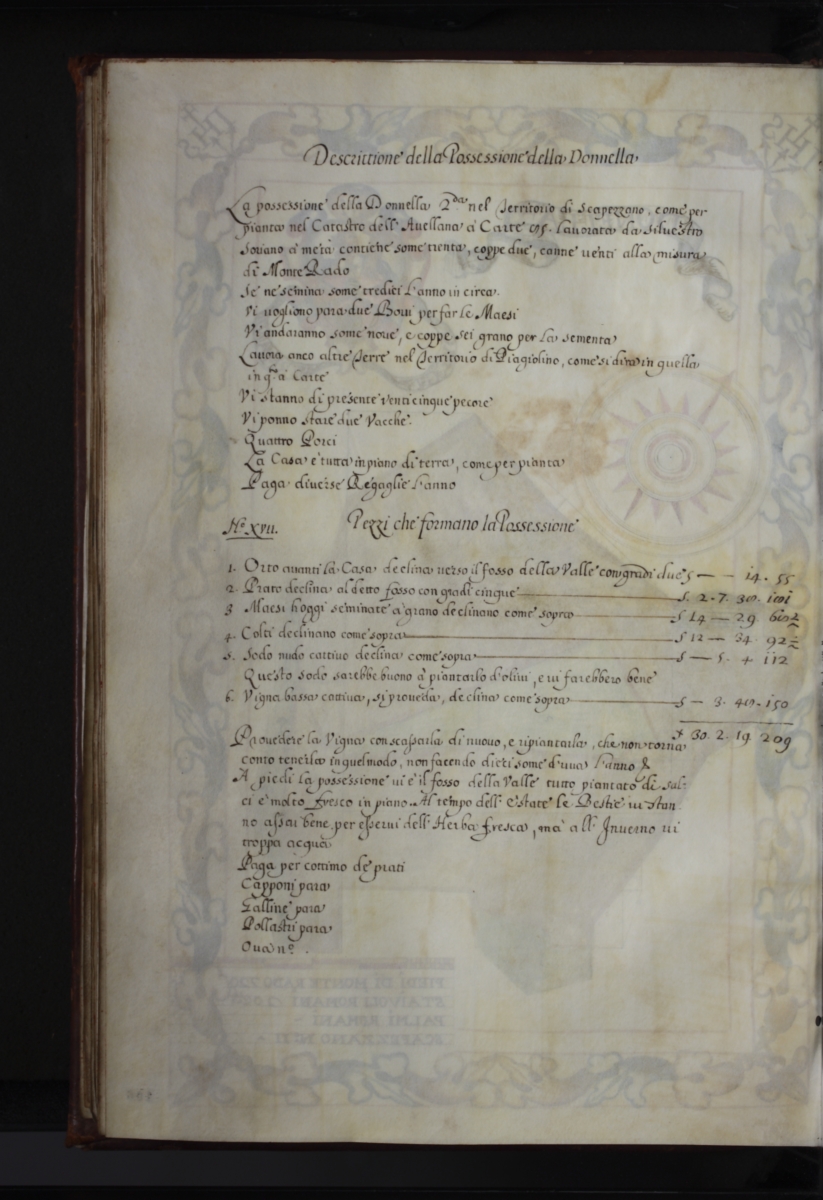 Descrittione della Possessione della Donnella
La possessione della Donnella 2da nel Territorio di Scapezzano, come per
pianta nel Catastro dell'Avellana à Carte lavorata da Silvestro
Soriano à metà contiene some trenta, coppe due, canne venti alla misura
di Monte Rado
Se ne semina some tredici l'anno in circa.
Vi vogliono para due Bovi per far le Maesi
Vi andaranno some nove, e coppe sei grano per la sementa
Lavora anco altre Terre nel Territorio di Piagiolino, come si dirà in quella
in qa à Carte
Vi stanno di presente venti cinque pecore
Vi ponno stare due Vacche.
Quattro Porci
La Casa è tutta in piano di terra, come per pianta
Paga diverse Regaglie l'anno
No. XVII. Pezzi che formano la Possessione
1. Orto avanti la Casa declina verso il fosso della Valle con gradi due S — — 14. 55
2. Prato declina al detto fosso con gradi cinque — S. 2. 7. 30. 101
3 Maesi hoggi seminate à grano declinano come sopra — S 14 — 29
4. Colti declinano come sopra — S 12 — 34. 92
5. Sodo nudo cattivo declina come sopra — S — 5. 4 112
Questo sodo sarebbe buono à piantarlo d'olivi, e vi farebbero bene
6. Vigna bassa cattiva, si proveda, declina come sopra — S — 3. 40. 150
S 30. 2. 19 209
Provedere la Vigna con scassarla di nuovo, e ripiantarla, che non torna
conto tenerla in quel modo, non facendo dieci some d'uva l'anno &
A piedi la possessione vi è il fosso della Valle tutto piantato di sal-
ci è molto fresco in piano. Al tempo dell'estate le Bestie vi stan
no assai bene per esservi dell'Herba fresca, mà all'Inverno vi
troppa acqua
Paga per cottimo de prati
Capponi para
Galline para
Pollastri para
Ova no.